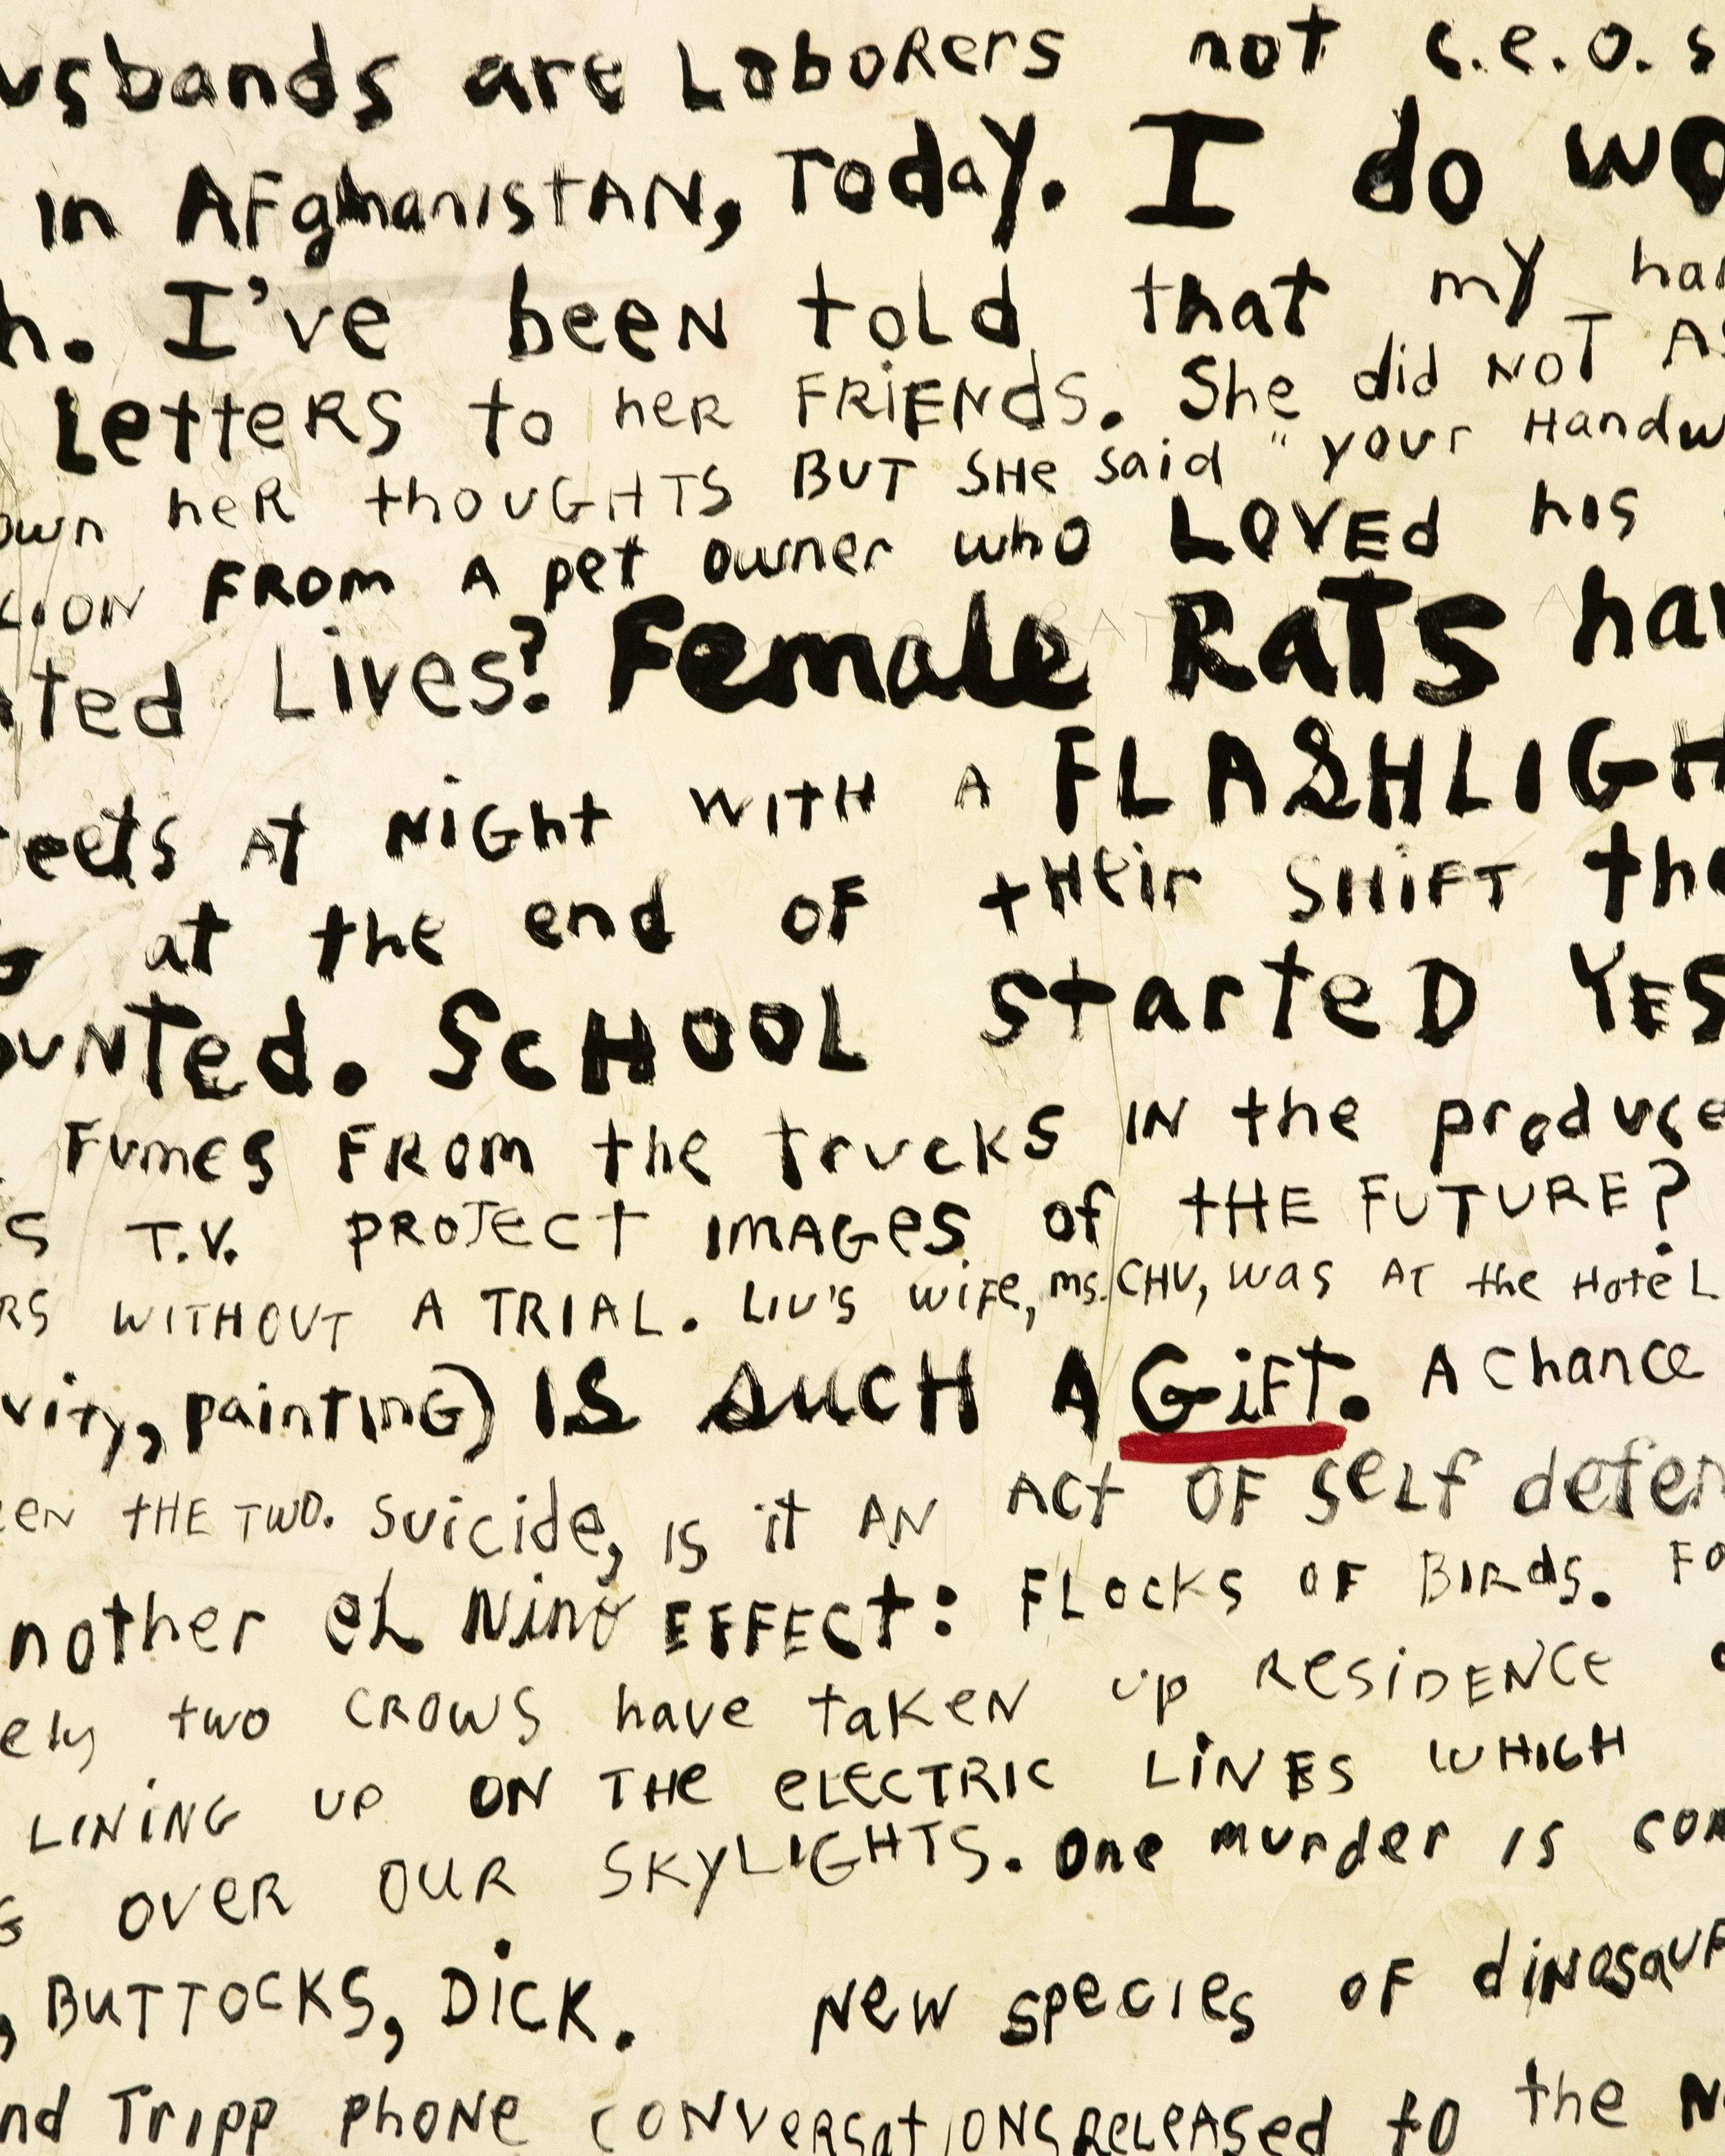 usbands are LaboRers not c.e.o.s
in AFghanistAN, Today. I do wo
h. I've been told that my han
Letters to her FRiENds. She did NOT AS
own heR thoUGHTS BUT SHe said "your Handw
LiON FROm A pet owner who LOVEd his
ated Lives? Female RaTS hav
eets At NiGht WITH A FLASHLIGH
G at the end OF tHeir SHIFT the
ounted. ScHOOL starteD YES
Fumes FROm the trucks IN the produce
S T.V. PROJECT IMAGes of tHE FUTURE?
RS WITHOUT A TRIAL. LIU'S wiFe, ms. CHU, was AT the HoteL
vity, paintinG) IS SucH A GiFt. A chance
een tHE TWO. Suicide, is it AN Act OF seLf defen
nother eL Nino EFFEct: FLocks OF BIRds. FO
ely two CROWS have taKeN up ResiDENCe
LINiNG UP ON THe eLECTRIC LiNES WHICH
G OVER OUR SKyLIGHTS. One murder is com
, BuTTOCKS, DicK. New species OF dinosaur
nd Tripp phoNe CONVeRsatiONS ReLEASed to the N